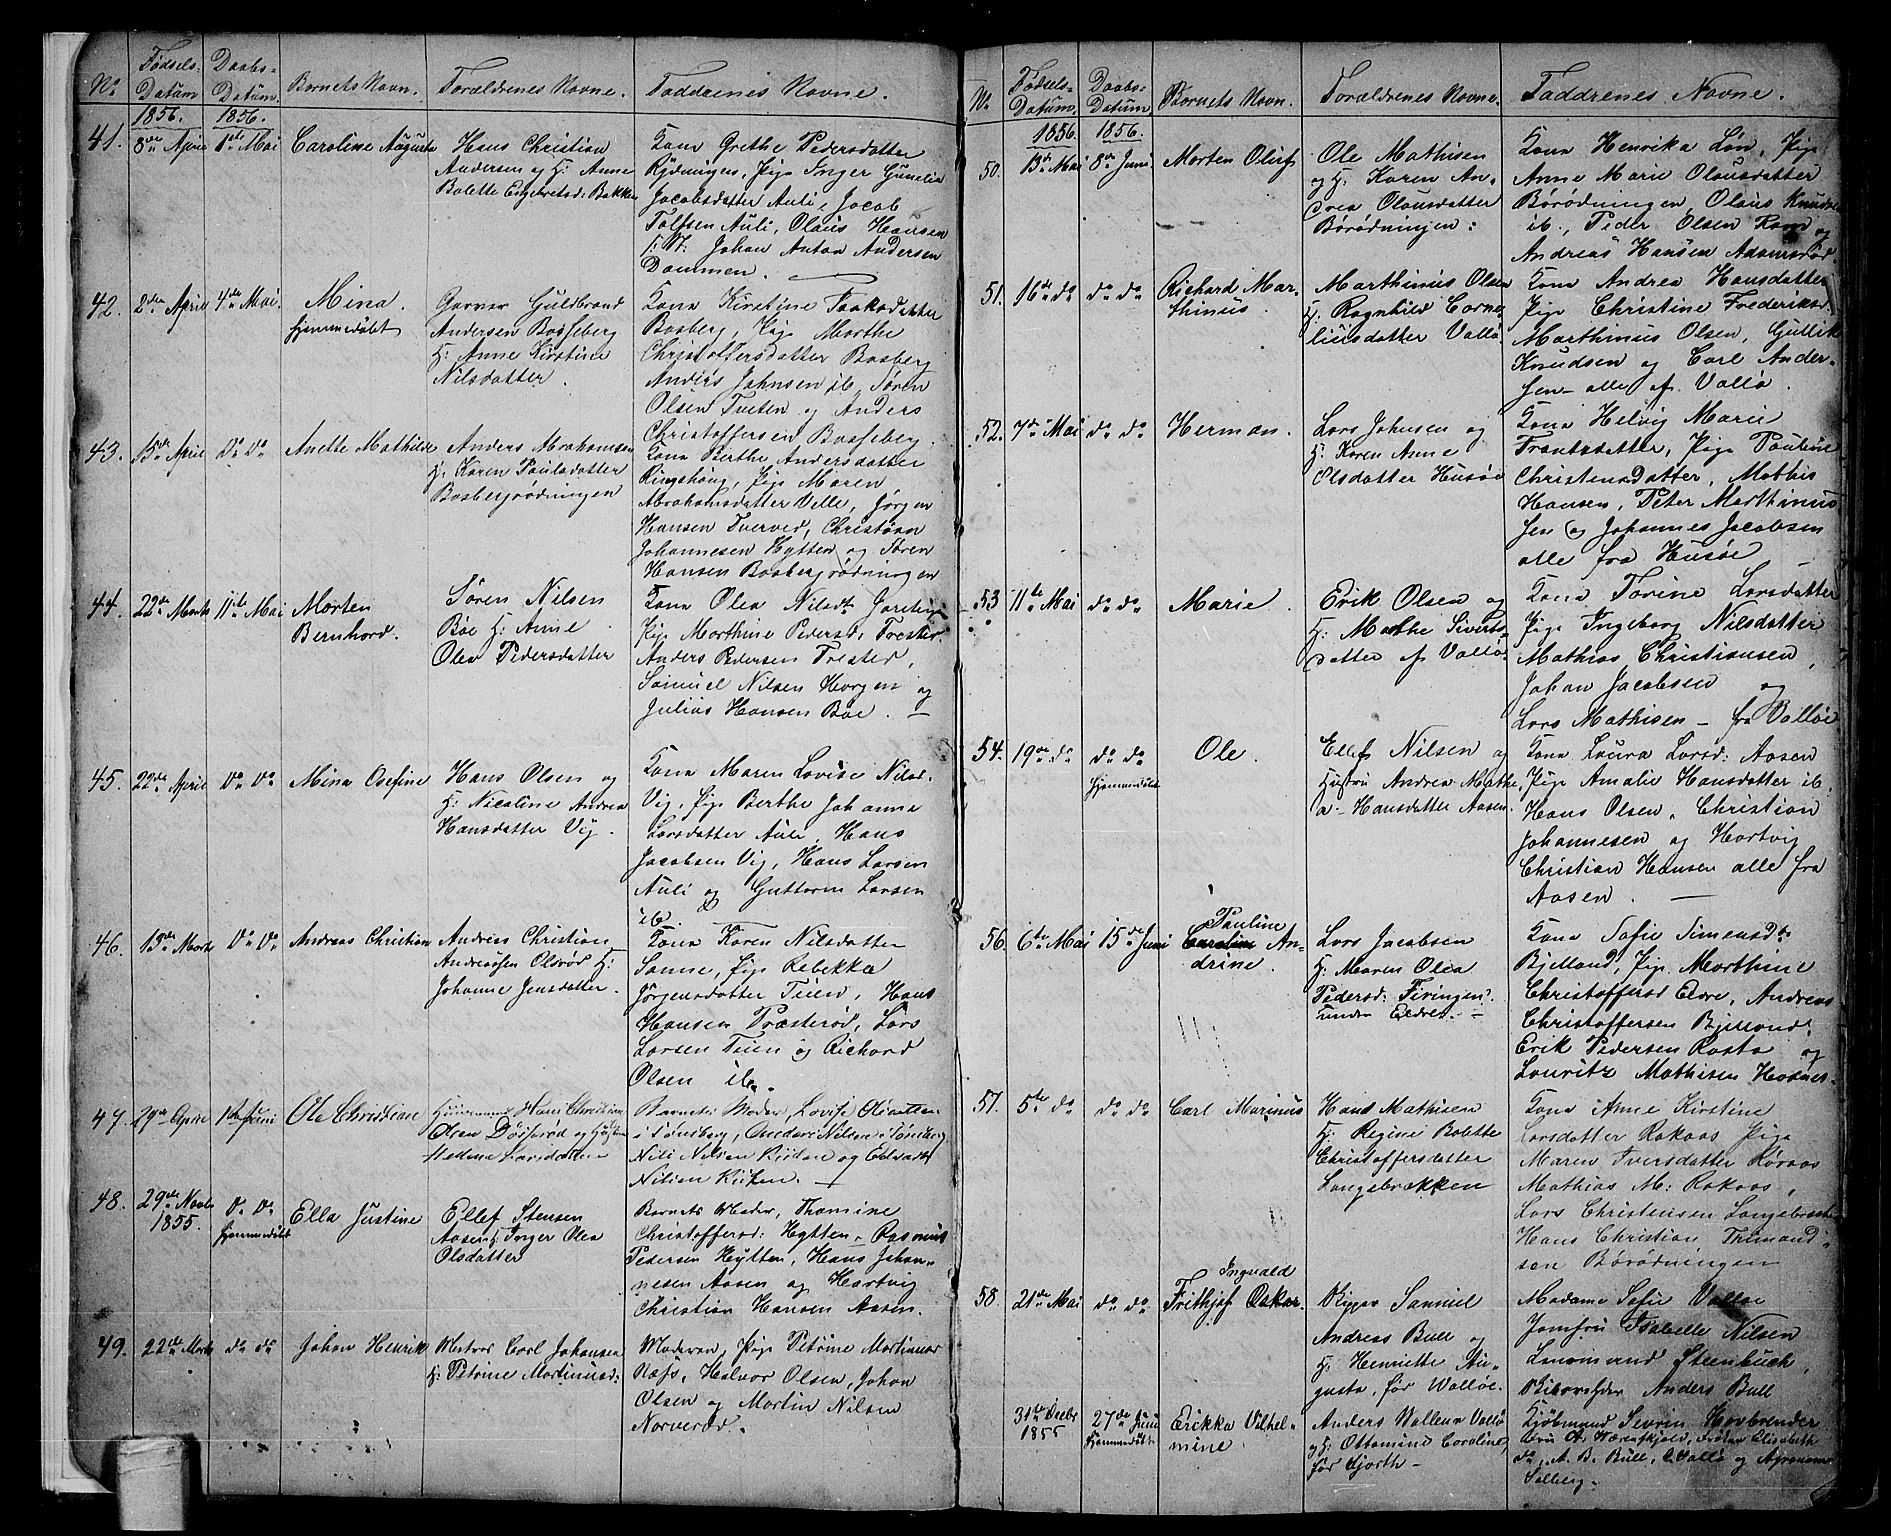 No. Fødsels- Datum Daabs- Datum. Barnets Navn. Forældrenes Navne. Faddrenes Navne.
1856. 1856.
41. 8de April 1ste Mai Caroline Augusta Hans Christian
Andersen og H: Anne
Bolette Engebretsd: Bakken
Kona Grethe Pedersdatter
Rydningen, Pige Inger Gunelia
Jacobsdatter Auli, Jacob
Tolfsen Auli, Olaus Hansen
Johan Anton Andersen
Dammen.
42. 2den April 4de Mai. Mina.
hjemmedøbt
Gaarm: Guldbrand
Andersen Bosseberg
H: Anne Kirstine
Nilsdatter.
Kona Kirstine Isaksdatter
Bosberg, Pige Marthe
Christoffersdatter Bosberg
Anders Johnsen ib, Søren
Olsen Tveten og Anders
Christoffersen Bosseberg.
43. 15de April do do Anette Mathilde Anders Abrahamsen
H: Karen Paulsdatter
Bosbergrødningen
Kona Berthe Andersdatter
Ringshoug, Pige Maren
Abrahamsdatter Velle, Jørgen
Hansen Tverved, Christian
Johannesen Hytten og Søren
Hansen Bosbergrødningen
44. 22de Marts 11te Mai Morten
Bernhard.
Søren Nilsen
Bøe H: Anne
Olea Pedersdatter
Kona Olea Nilsdt
Pige Marthine Pedersd: Trester
Anders Pedersen Trester,
Samuel Nilsen Horgen og
Julius Hansen Bøe. —
45. 22de April do do Mina Osefine Hans Olsen og
H: Nicoline Andrea
Hansdatter Vig.
Kona Maren Lovise Nilsd.
Vig, Pige Berthe Johanne
Larsdatter Auli, Hans
Jacobsen Vig, Hans Larsen
Auli og Guttorm Larsen
ib.
46. 13de Marts do do Andreas Christian Andreas Christian
Andreasen Olsrød H:
Johanne Jensdatter.
Kona Karen Nilsdatter
Sanne, Pige Rebekka
Jørgensdatter Teien, Hans
Hansen Præsterød, Lars
Larsen Teien og Richard
Olsen ib.
47. 29de April 1ste Juni Ole Christian Hans Christian
Olsen og Hustru
Helena Larsdatter
Barnets Moder, Lovise
i Tønsberg, Anders Nilsen i Tønsberg
Nils Nilsen og Edvard
Nilsen
48. 29de Novbr
1855. do do
hjemmedøbt
Ella Justine Ellef Stensen
Aasen H: Inger Olea
Olsdatter
Barnets Moder, Thomine
Christoffersd: Hytten, Rasmus
Pedersen Hytten, Hans Johan-
nesen Aasen og Hartvig
Christian Hansen Aasen.
49. 22de Marts do do Johan Henrik Matros Carl Johansen
H: Petrine Martinusd:
Moderen, Pige Petrine Martinusd
Næss, Halvor Olsen, Johan
Olsen og Martin Nilsen
Narverød.
No. Fødsels- Datum. Daabs- Datum. Barnets Navn. Forældrenes Navne. Faddrenes Navne.
1856. 1856.
50. 13de Mai 8de Juni Morten Oluf Ole Mathisen
og H: Karen An-
drea Olausdatter
Børødningen:
Kona Henrika Løn, Pige
Anne Marie Olausdatter
Børødningen, Olaus Knudsen
ib., Peder Olsen Ram og
Andreas Hansen Adamsrød.
51. 16de do do do Richard Mar-
thinus.
Marthinus Olsen
H: Ragnhild Corne-
liusdatter Vallø.
Kona Andrea Hansdatter
Pige Christine Frederiksd.
Marthinus Olsen, Gullik
Knudsen og Carl Ander-
sen — alle af Vallø.
52. 7de Mai do do Herman. Lars Johnsen og
H: Karen Anne
Olsdatter Husøe
Kona Helvig Marie
Frantsdatter, Pige Pauline
Christensdatter, Mathis
Hansen, Peter Marthinus-
sen og Johannes Jacobsen
alle fra Husøe
53 11te Mai do do Marie. Erik Olsen og
H: Marthe Siverts-
datter af Vallø.
Kona Torine Larsdatter
Pige Ingeborg Nilsdatter
Mathias Christiansen,
Johan Jacobsen og
Lars Mathisen — fra Valløe
54. 19de do do do
Hjemmedøbt
Ole. Ellef Nilsen og
Hustru Andrea Mathe-
a Hansdatter Aasen.
Kona Laura Larsd: Aasen
Pige Amalie Hansdatter ib.
Hans Olsen, Christian
Johannesen og Hartvig
Christian Hansen alle fra
Aasen. —
56. 6te Mai 15de Juni Pauline
Caroline An-
drine.
Lars Jacobsen
H: Maren Olea
Pedersd: Firingen
under Eldre. —
Kona Sofie Simensdt
Bjelland, Pige Marthine
Christoffersd Eldre, Andreas
Christoffersen Bjelland,
Erik Pedersen Rosta og
Lauritz Mathisen
57. 5te do do do Carl Marinus Hans Mathisen
H: Regine Bolette
Christoffersdatter
Langebrækken
Kona Anne Kirstine
Larsdatter Rakaas Pige
Maren Iversdatter Røraas
Mathias M: Rakaas,
Lars Christensen Langebrækken
Hans Christian
sen Børødningen
58. 21de Mai do do Ingvald
Frithjof Oskar. Rigger Samuel
Andreas Bull og
H: Henriette Au-
gusta, før Valløe.
Madame Sofie Valløe
Jomfru Isabelle Nilsen
Steenbuch,
Anders Bull
Kjøbmand Severin Havbrender
31te Decbr
1855 27de Juni
Hjemmedøbt
Erikka Vilhel-
mine Anders Wallenn Vallø
og H: Ottomine Caroline,
før Hjorth —
Fru A. Frøken Elisabeth
do, A. B. Bull, Vallø og
Solberg —